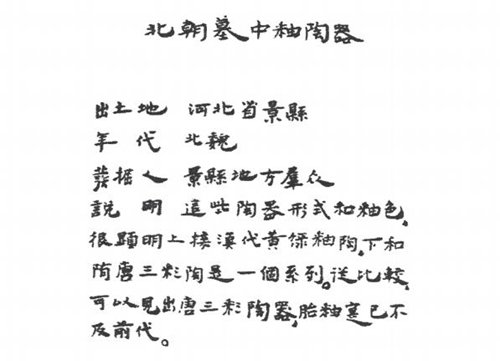 北朝墓中釉陶器
出土地 河北省景縣
年代 北魏
葬掘人 景縣地方羣众
說明 這些陶器形式和釉色,
很顕明上接漢代黄保釉陶,下和
隋唐三彩陶是一個系列。從比較,
可以見出唐三彩陶器,胎釉寔已不
及前代。